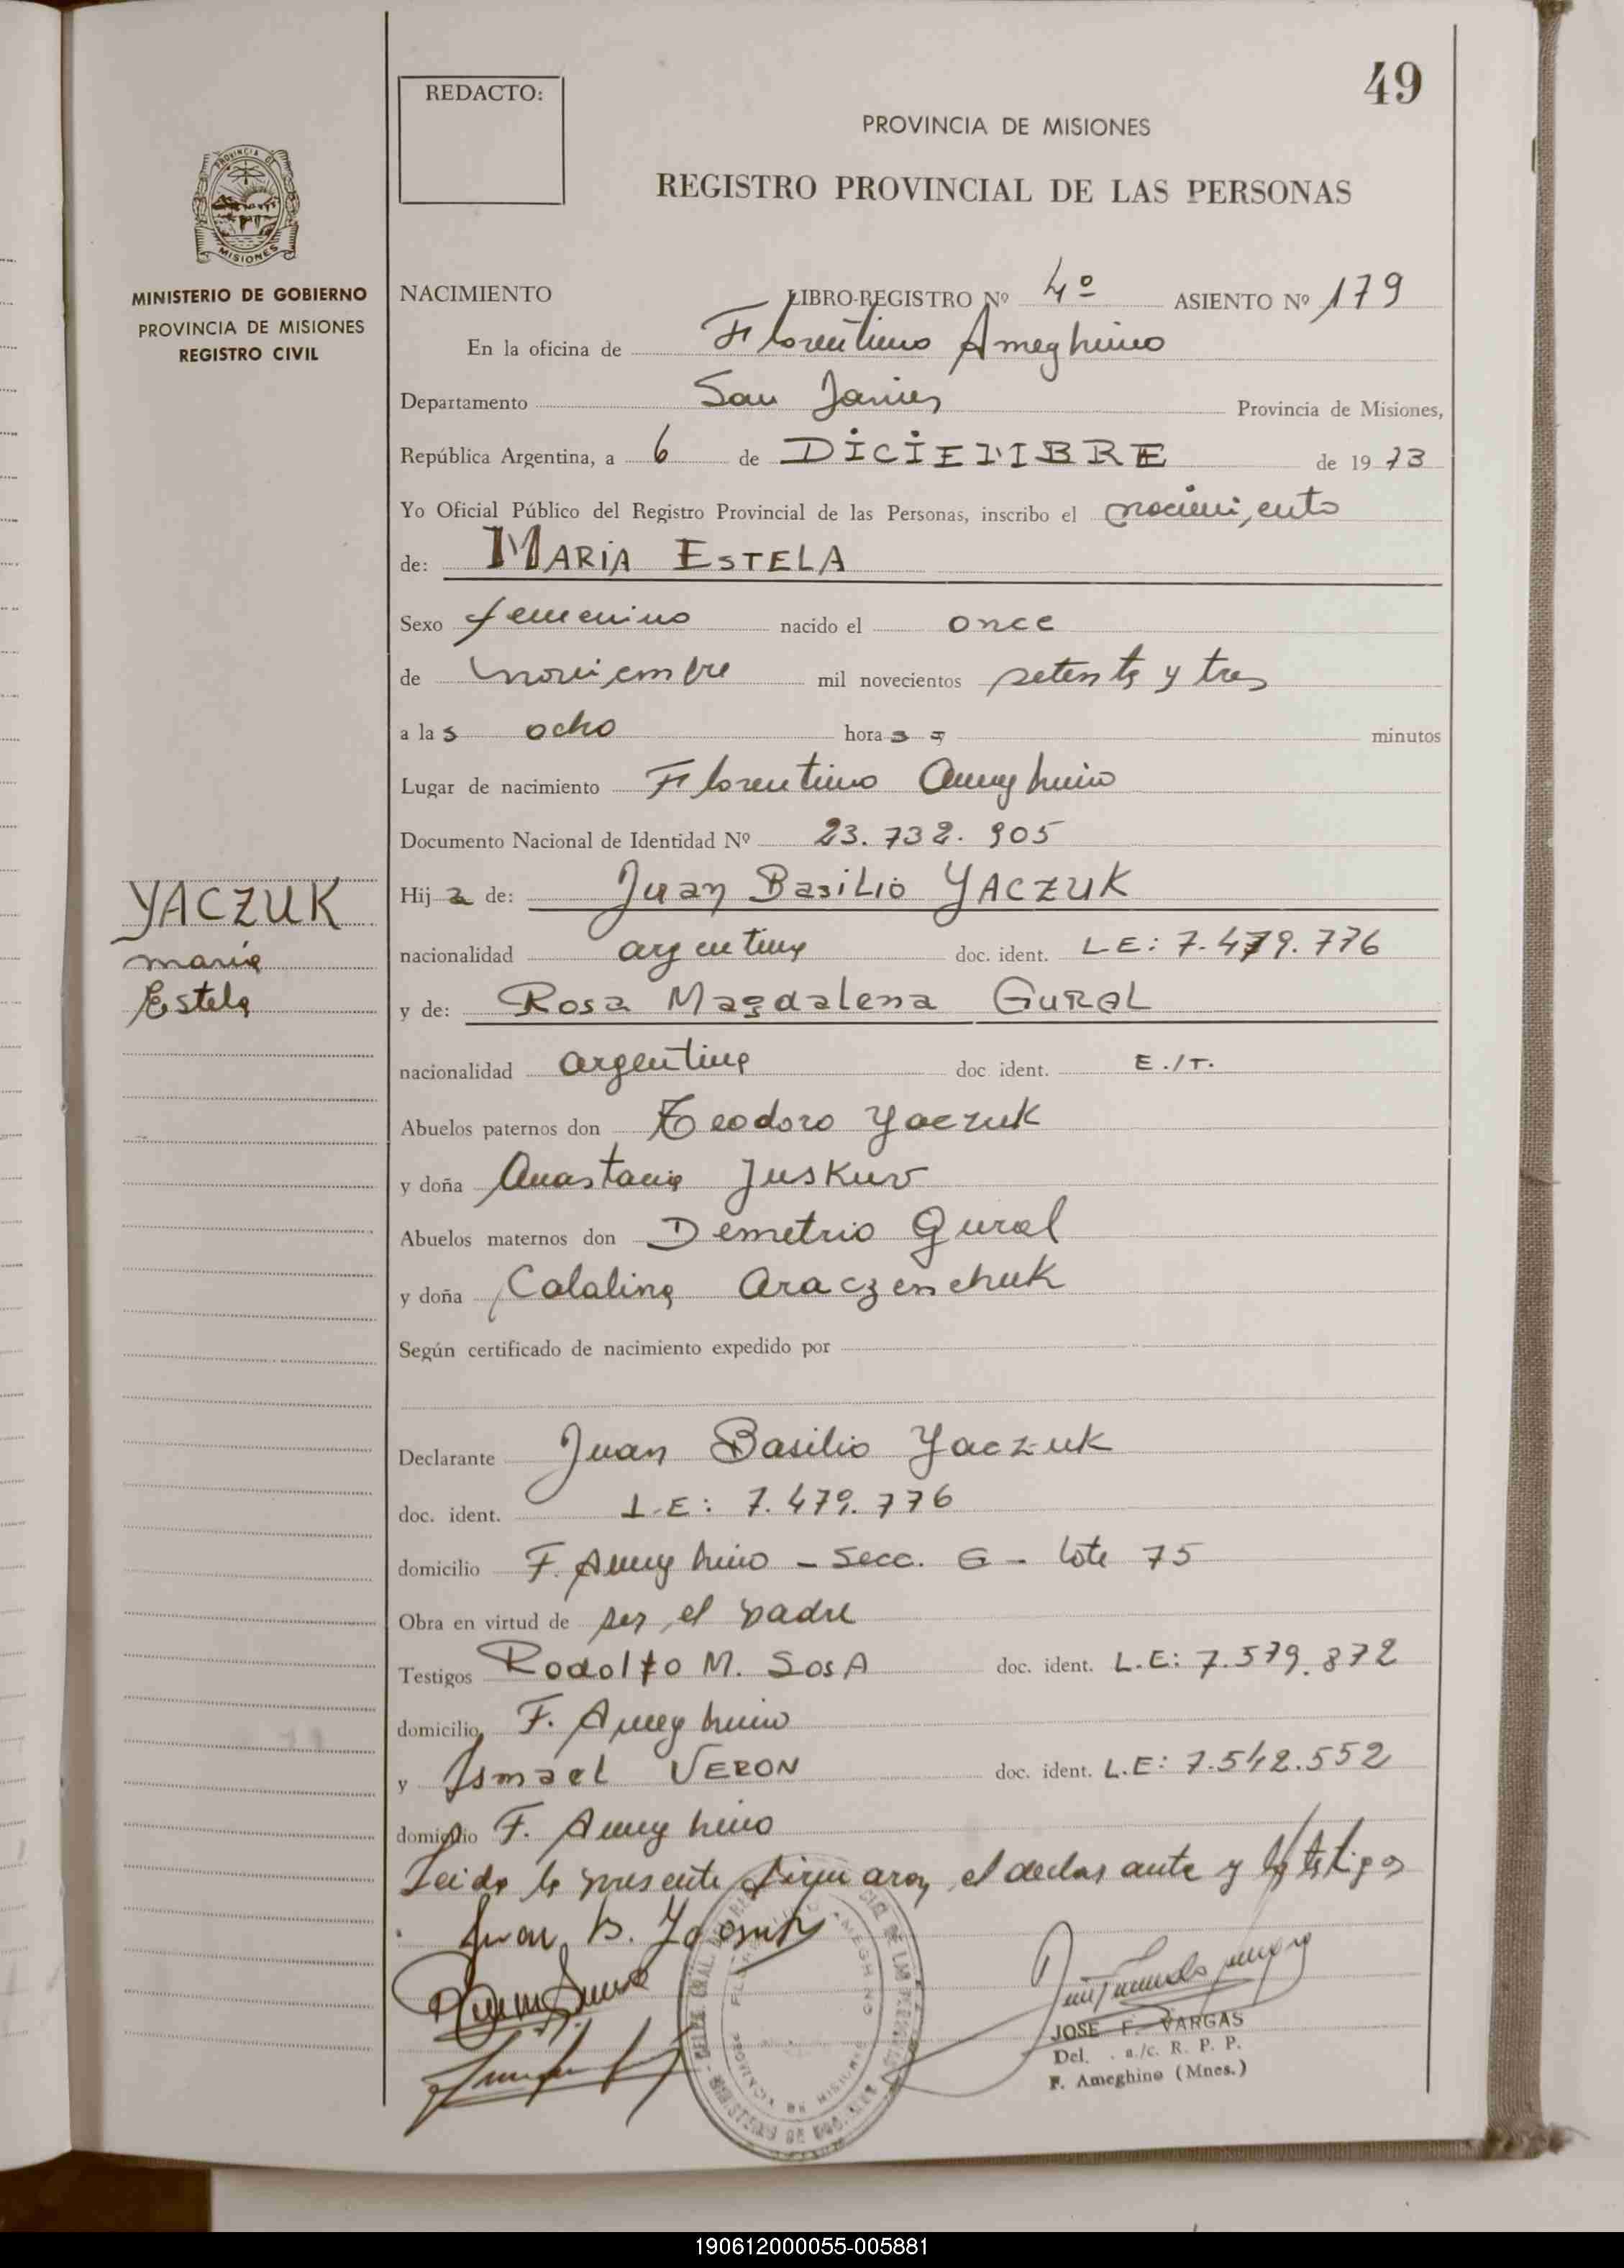 49
REDACTO:
PROVINCIA DE MISIONES
REGISTRO PROVINCIAL DE LAS PERSONAS
PROVINCIA DE
MISIONES
MINISTERIO DE GOBIERNO
PROVINCIA DE MISIONES
REGISTRO CIVIL
NACIMIENTO LIBRO-REGISTRO Nº 4º ASIENTO Nº 179
En la oficina de Florentino Ameghino
Departamento San Javier Provincia de Misiones,
República Argentina, a 6 de DICIEMBRE de 1973
Yo Oficial Público del Registro Provincial de las Personas, inscribo el nacimiento
de: MARIA ESTELA
Sexo femenino nacido el once
de noviembre mil novecientos setenta y tres
a las ocho horas minutos
Lugar de nacimiento Florentino Ameghino
Documento Nacional de Identidad Nº 23.732.905
YACZUK
maria
Estela
Hija de: Juan Basilio YACZUK
nacionalidad argentina doc. ident. LE: 7.479.776
y de: Rosa Magdalena GURAL
nacionalidad argentina doc ident. E./T.
Abuelos paternos don Teodoro Yaczuk
y doña Anastacia Juskuv
Abuelos maternos don Demetrio Gural
y doña Catalina Araczenchuk
Según certificado de nacimiento expedido por
Declarante Juan Basilio Yaczuk
doc. ident. L.E: 7.479.776
domicilio F. Ameghino - Secc. G - lote 75
Obra en virtud de ser el padre
Testigos Rodolfo M. SOSA doc. ident. L.E: 7.579.872
domicilio F. Ameghino
y Ismael VERON doc. ident. L.E: 7.542.552
domicilio F. Ameghino
Leida la presente firmaron el declarante y los testigos
Juan B. Yaczuk
JOSE F. VARGAS
Del. a./c. R. P. P.
F. Ameghino (Mnes.)
190612000055-005881